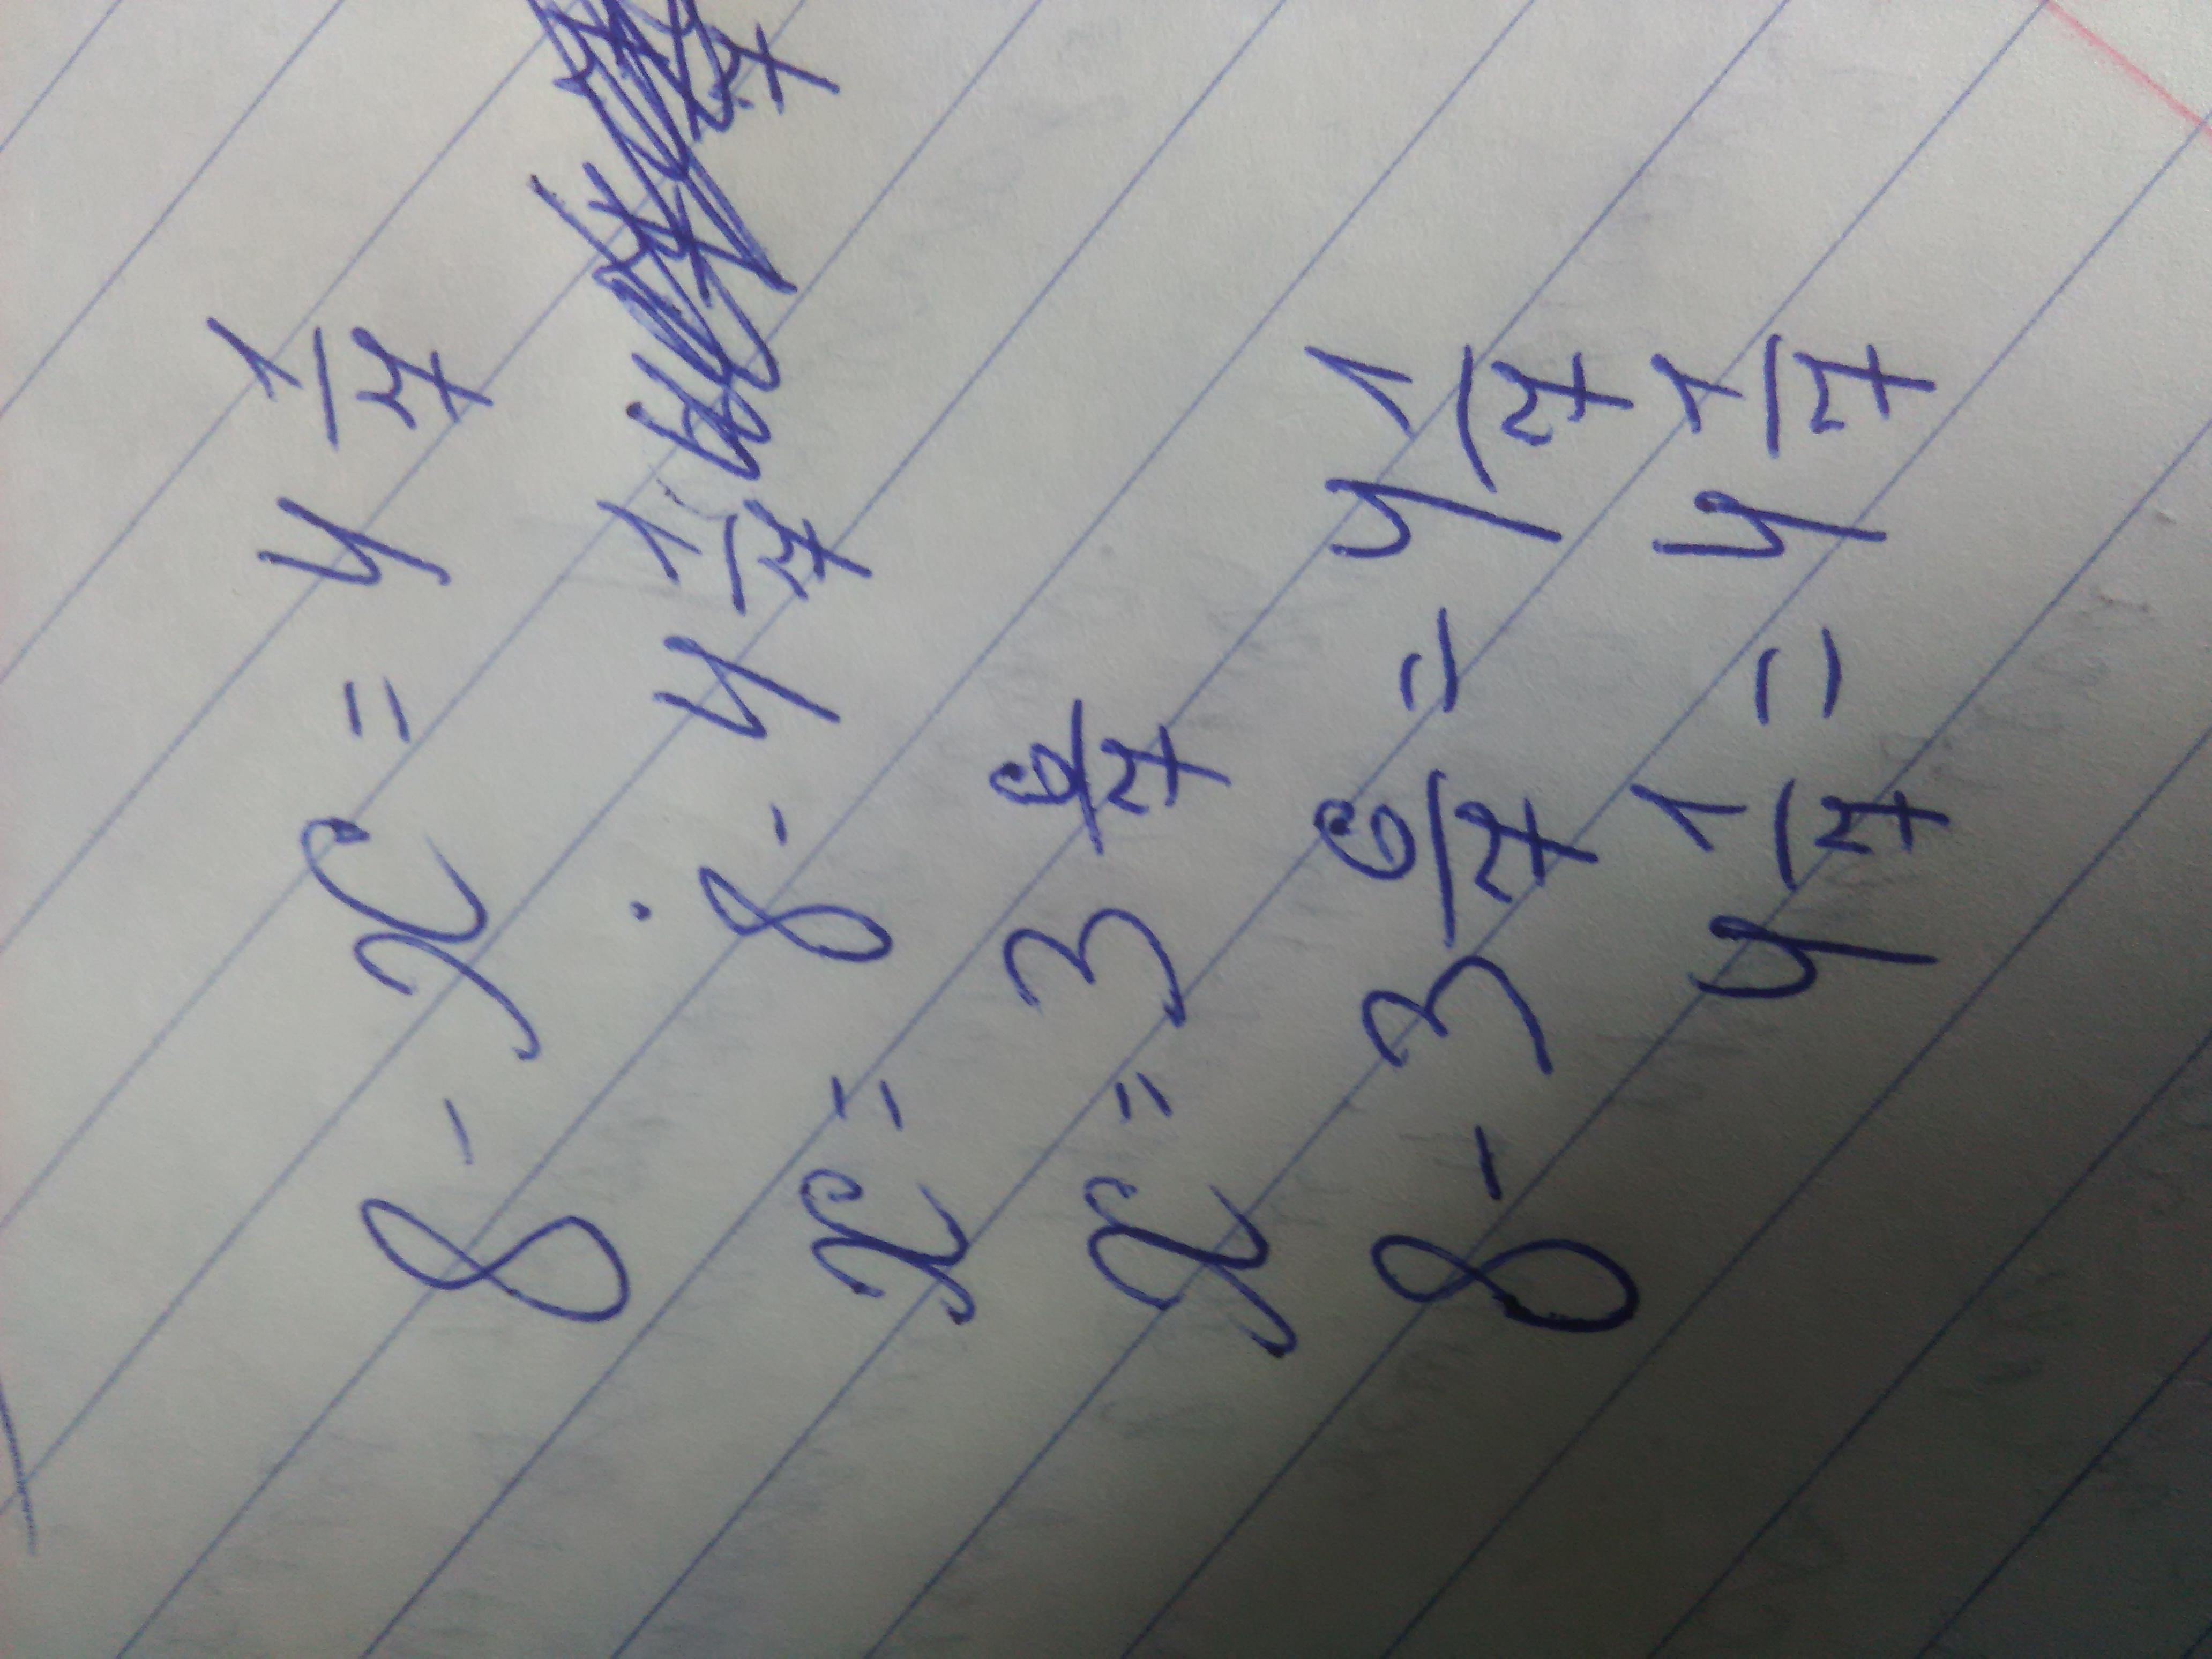 8 - x = 4 1/7
x = 8 - 4 1/7
x = 3 6/7
8 - 3 6/7 = 4 1/7
4 1/7 = 4 1/7